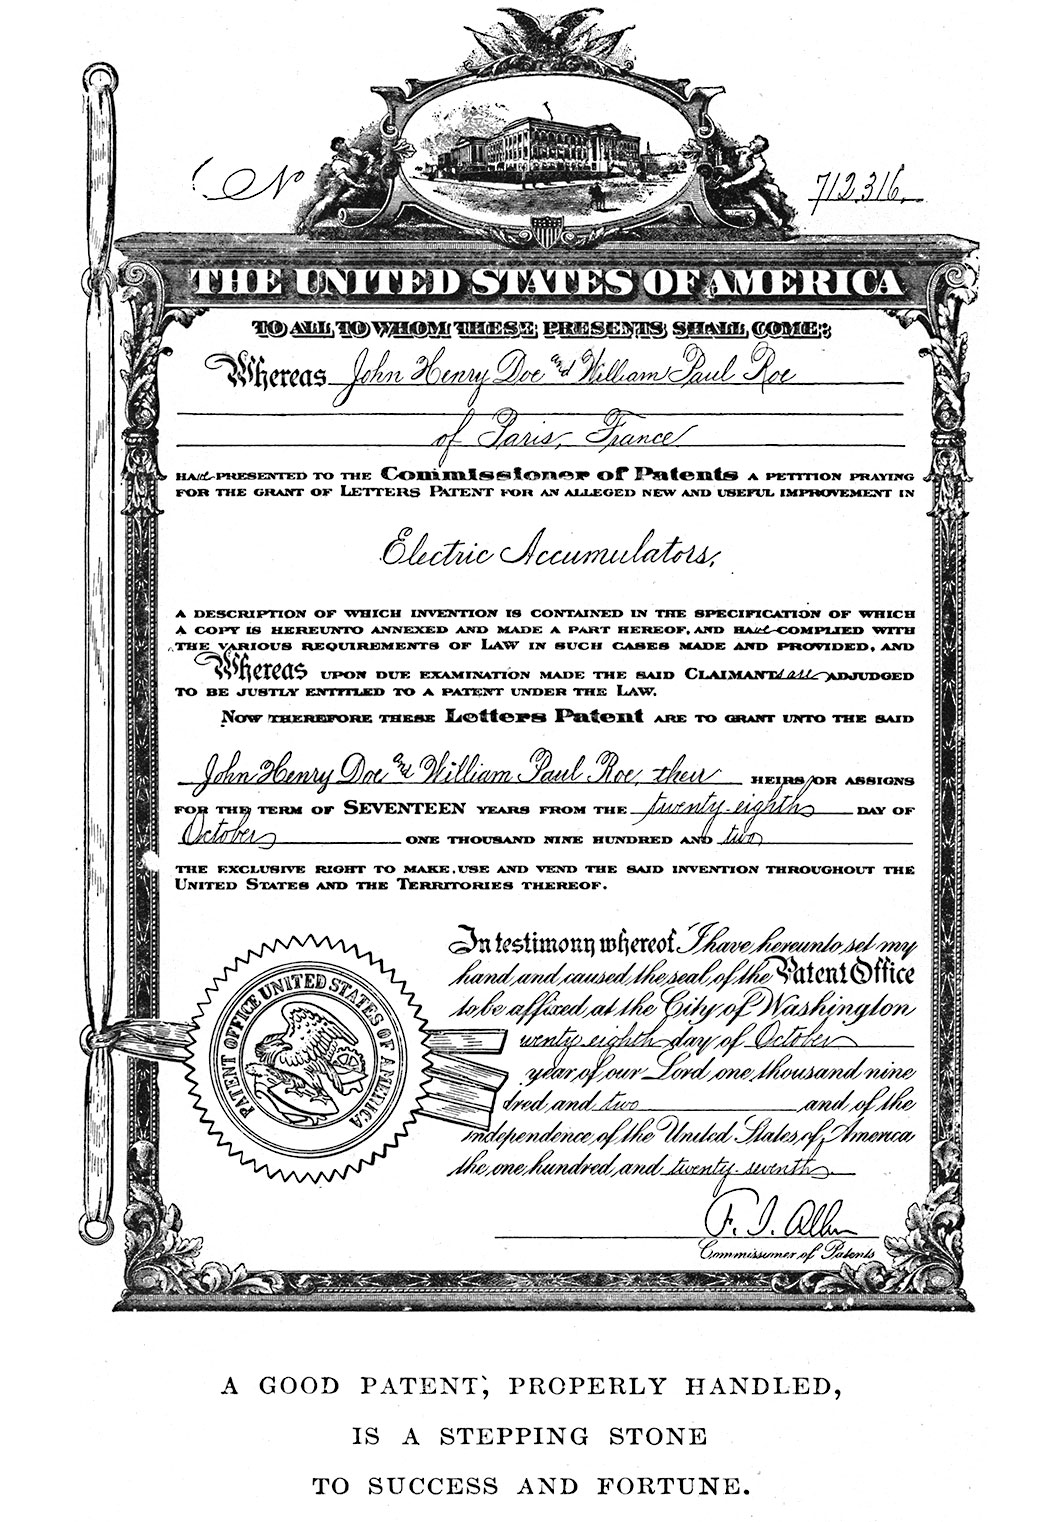 No 712,316.
THE UNITED STATES OF AMERICA
TO ALL TO WHOM THESE PRESENTS SHALL COME:
Whereas John Henry Doe and William Paul Roe
of Paris, France
HAve PRESENTED TO THE Commissioner of Patents A PETITION PRAYING
FOR THE GRANT OF LETTERS PATENT FOR AN ALLEGED NEW AND USEFUL IMPROVEMENT IN
Electric Accumulators,
A DESCRIPTION OF WHICH INVENTION IS CONTAINED IN THE SPECIFICATION OF WHICH
A COPY IS HEREUNTO ANNEXED AND MADE A PART HEREOF, AND HAve COMPLIED WITH
THE VARIOUS REQUIREMENTS OF LAW IN SUCH CASES MADE AND PROVIDED, AND
Whereas UPON DUE EXAMINATION MADE THE SAID CLAIMANTs are ADJUDGED
TO BE JUSTLY ENTITLED TO A PATENT UNDER THE LAW.
NOW THEREFORE THESE Letters Patent ARE TO GRANT UNTO THE SAID
John Henry Doe and William Paul Roe, their HEIRS OR ASSIGNS
FOR THE TERM OF SEVENTEEN YEARS FROM THE twenty-eighth DAY OF
October ONE THOUSAND NINE HUNDRED AND two
THE EXCLUSIVE RIGHT TO MAKE, USE AND VEND THE SAID INVENTION THROUGHOUT THE
UNITED STATES AND THE TERRITORIES THEREOF.
In testimony whereof I have hereunto set my
hand and caused the seal of the Patent Office
to be affixed at the City of Washington
wenty eighth day of October
year of our Lord one thousand nine
dred and two and of the
Independence of the United States of America
the one hundred and twenty-seventh.
PATENT OFFICE UNITED STATES OF AMERICA
F. I. Allen
Commissioner of Patents
A GOOD PATENT, PROPERLY HANDLED,
IS A STEPPING STONE
TO SUCCESS AND FORTUNE.